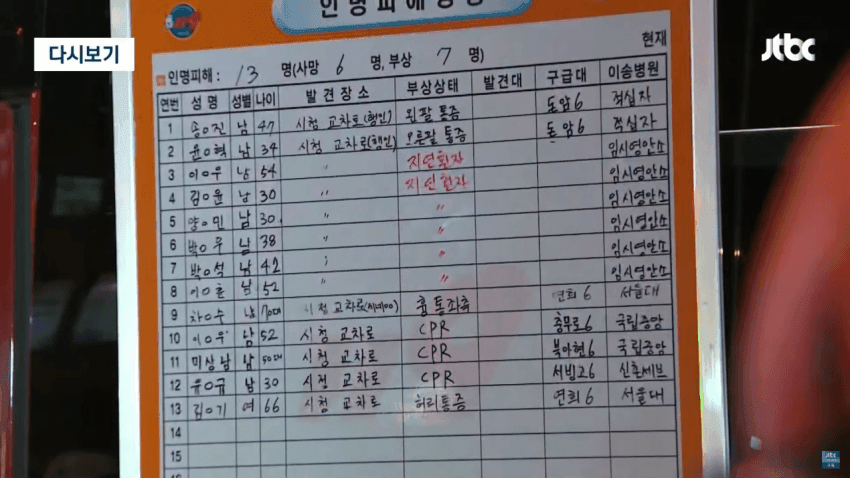 인명피해
현재
다시보기
jtbc
인명피해 : 13 명(사망 6 명, 부상 7 명)
연번 성명 성별 나이 발견장소 부상상태 발견대 구급대 이송병원
1 송O진 남 47 시청 교차로(행인) 왼팔 통증 돈암6 적십자
2 윤O혁 남 34 시청 교차로(행인) 오른팔 통증 돈암6 적십자
3 이O우 남 54 〃 지연환자 임시영안소
4 김O윤 남 30 〃 지연환자 임시영안소
5 양O민 남 30 〃 〃 임시영안소
6 박O우 남 38 〃 〃 임시영안소
7 박O석 남 42 〃 〃 임시영안소
8 이O훈 남 52 〃 〃 임시영안소
9 차O수 남 70대 시청 교차로 흉통좌측 연희6 서울대
10 이O우 남 52 시청 교차로 CPR 충무로6 국립중앙
11 미상남 남 50대 시청 교차로 CPR 북아현6 국립중앙
12 유O규 남 30 시청 교차로 CPR 서빙고6 신촌세브
13 김O기 여 66 시청 교차로 허리통증 연희6 서울대
14
15
jtbc